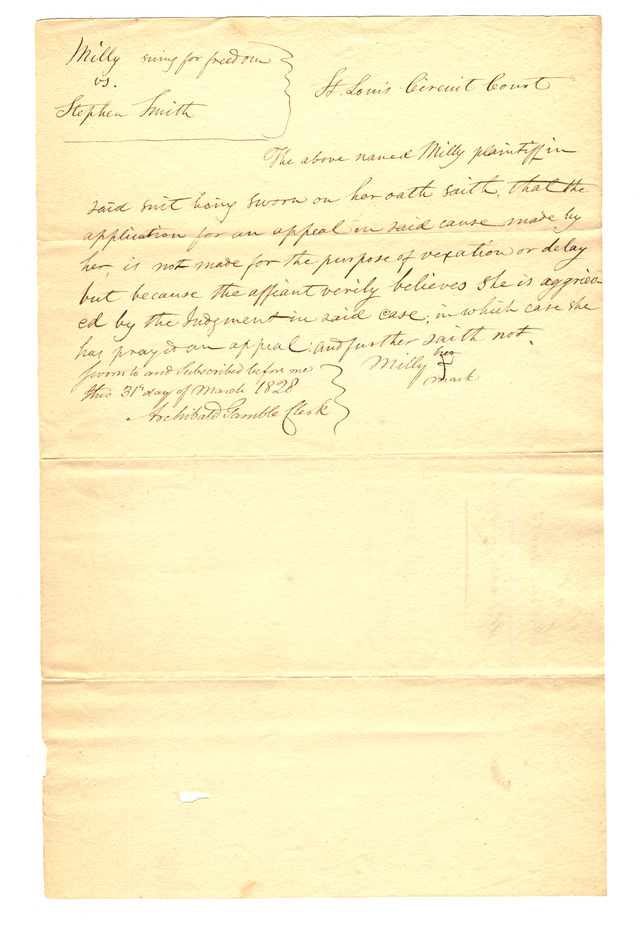 Milly suing for freedom
vs.
Stephen Smith
St. Louis Circuit Court
The above named Milly plaintiff in
said suit being sworn on her oath saith, that the
application for an appeal in said cause made by
her, is not made for the purpose of vexation or delay
but because the affiant verily believes she is aggriev-
ed by the Judgment in said case, in which case she
has pray'd an appeal: and further saith not.
Sworn to and Subscribed before me
this 31st day of March 1828
Archibald Gamble Clerk
Milly her
mark